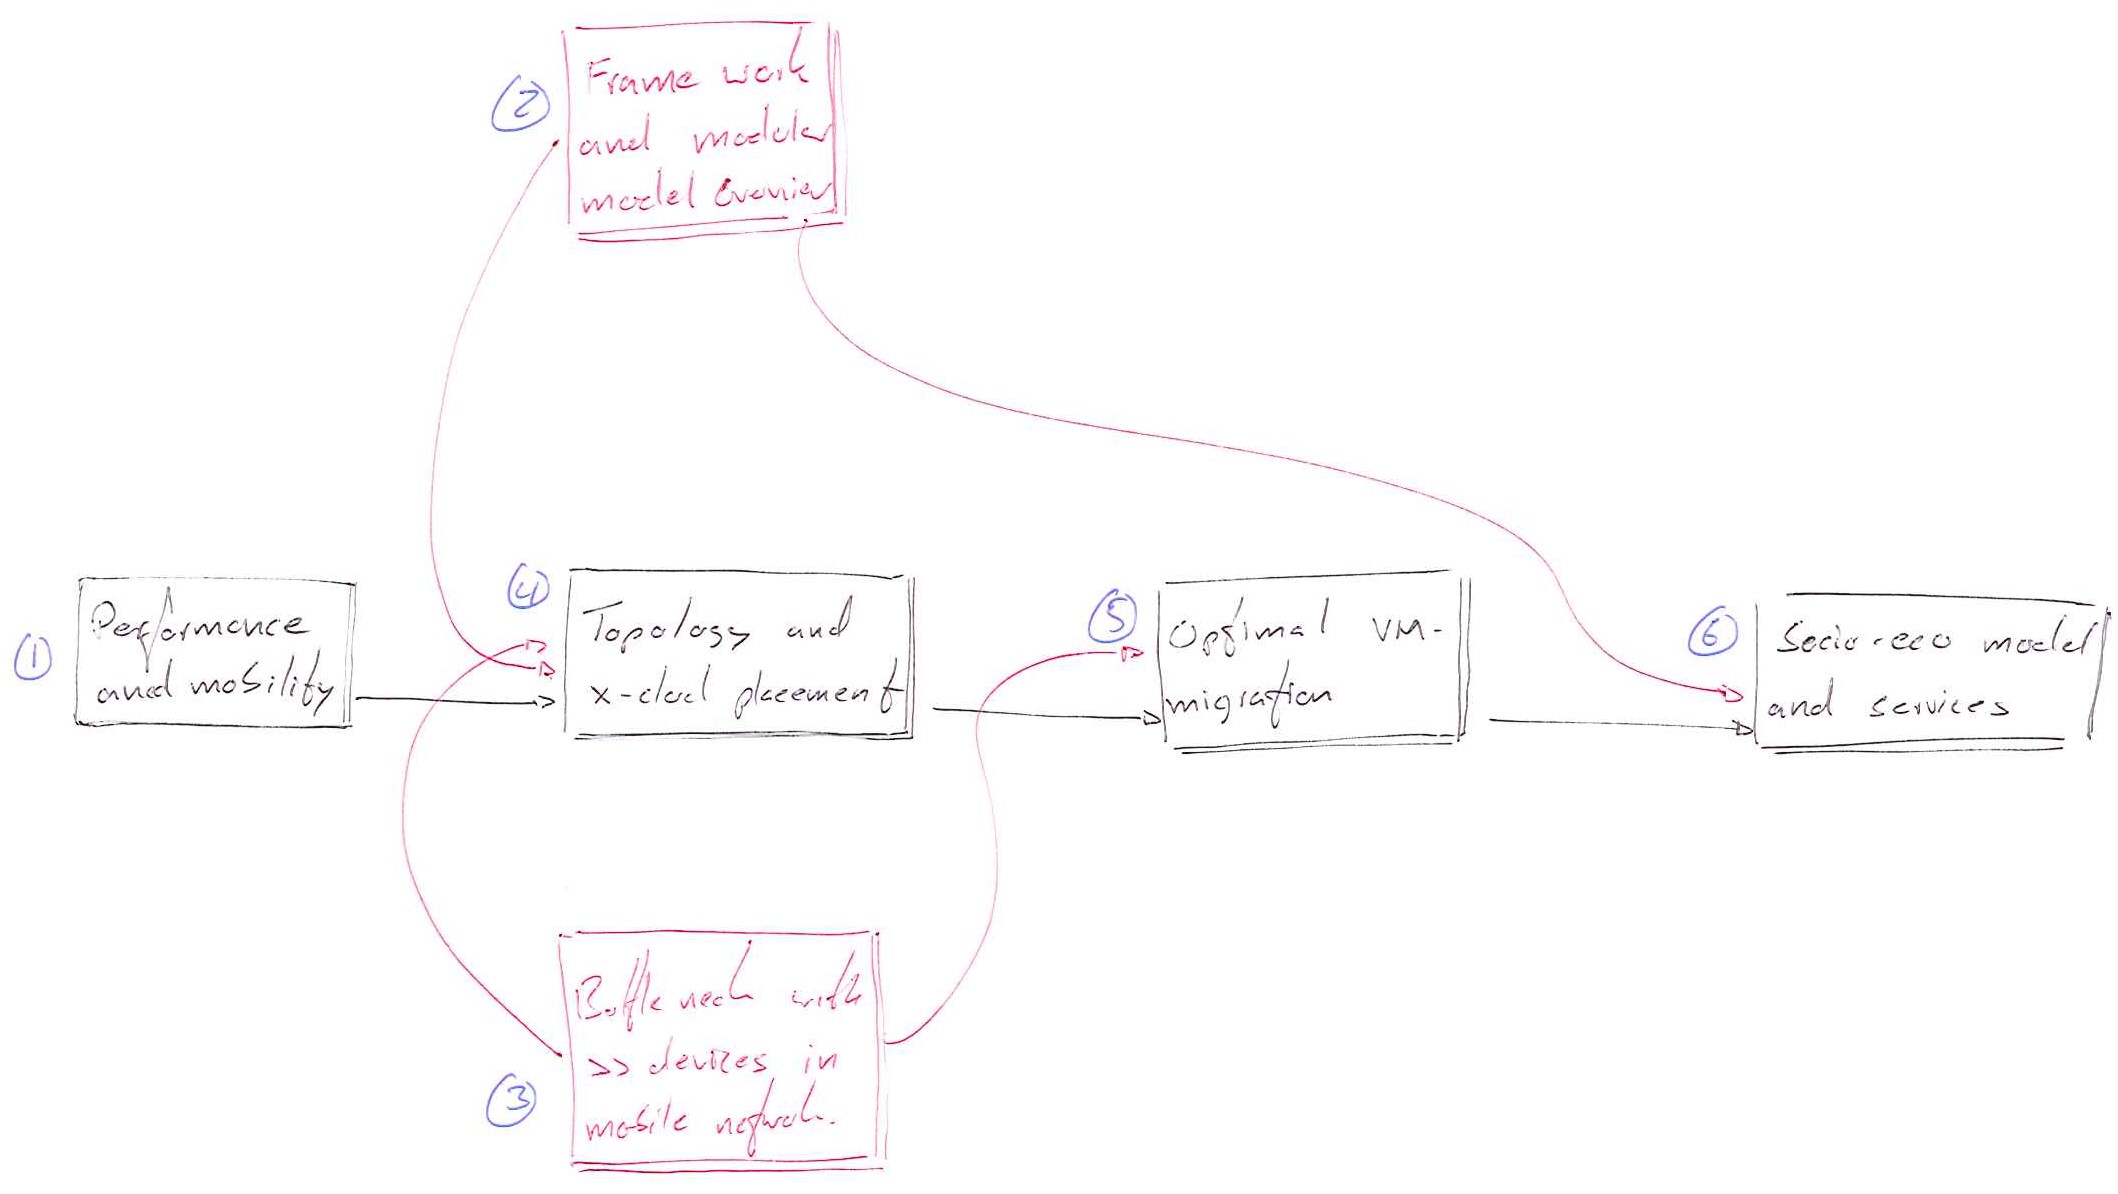 2
Frame work
and modular
model Overview
1
Performance
and mobility
4
Topology and
x-cloud placement
5
Optimal VM-
migration
6
Socio-eco model
and services
3
Bottle neck with
>> devices in
mobile network.